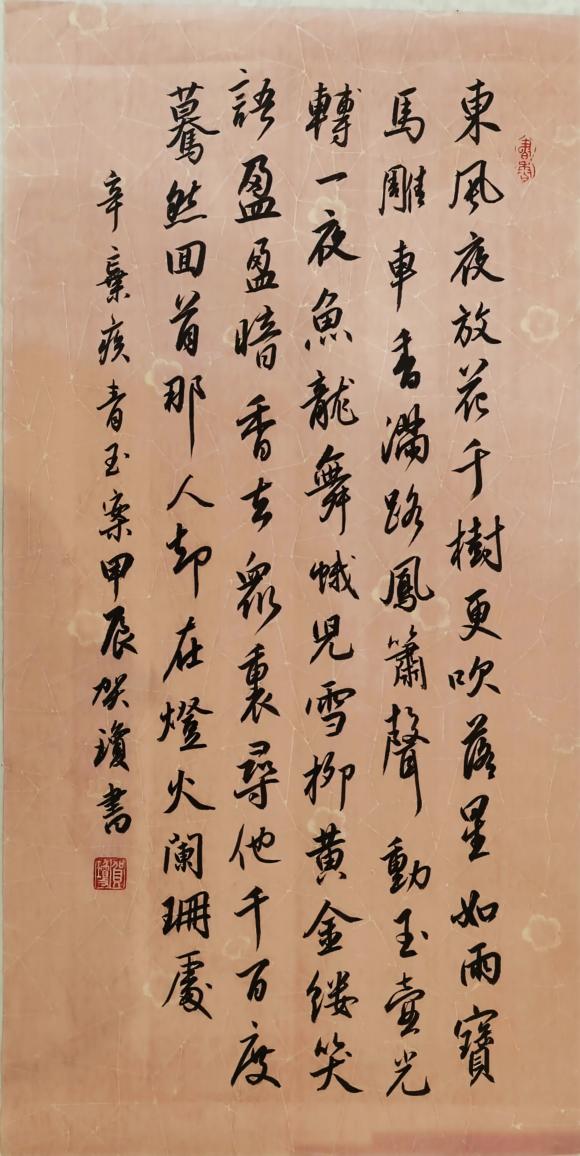 東風夜放花千樹更吹落星如雨寶
馬雕車香滿路鳳簫聲動玉壺光
轉一夜魚龍舞蛾兒雪柳黃金縷笑
語盈盈暗香去眾裏尋他千百度
驀然回首那人却在燈火闌珊處
辛棄疾青玉案甲辰賀瓊書
賀瓊